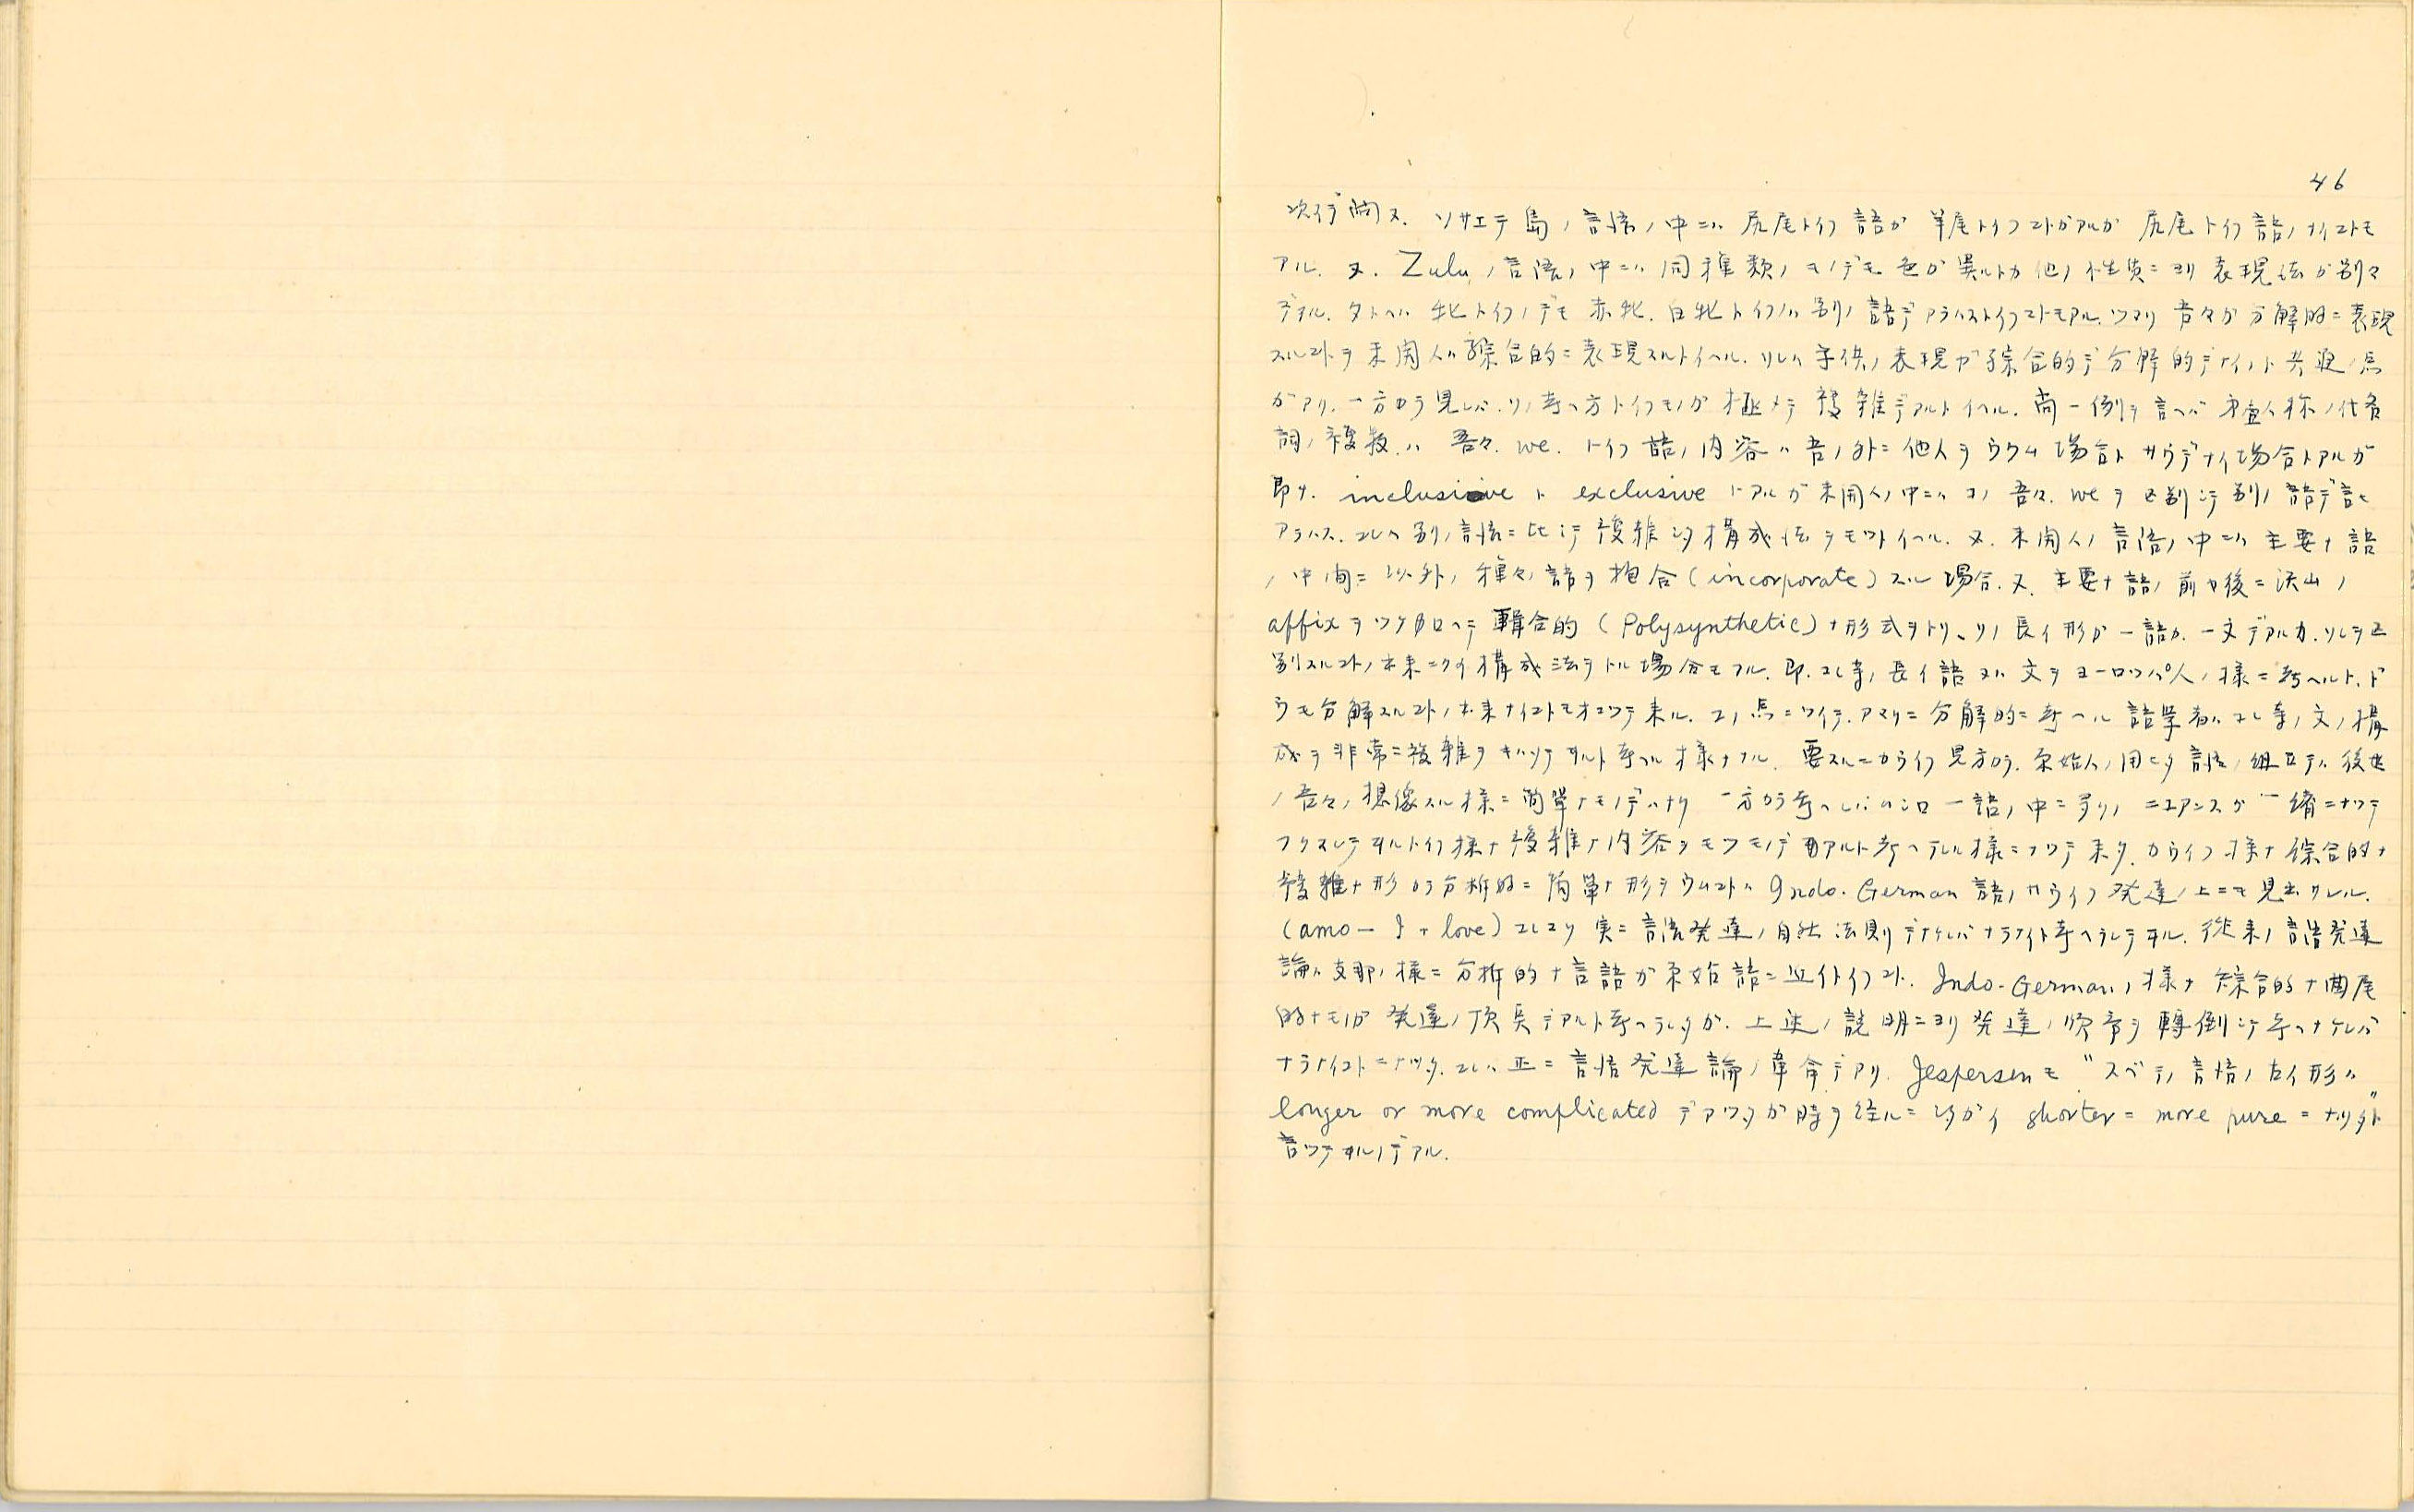 46
次イデ尚又. ソサエテ島ノ言語ノ中ニハ 尻尾トイフ語ガ 羊尾トイフコトガアルガ 尻尾トイフ語ノナイコトモ
アル. 又. Zuluノ言語ノ中ニハ同種類ノモノデモ色ガ異ルトカ他ノ性質ニヨリ表現法ガ別々
デアル. タトヘバ 牝トイフノデモ 赤牝. 白牝トイフノハ別ノ語デアラハストイフコトモアル. ツマリ 吾々ガ分解的ニ表現
スルコトヲ未開人ハ綜合的ニ表現スルトイヘル. ソレハ子供ノ表現ガ綜合的デ分解的デナイノト共通ノ点
ガアリ. 一方カラ見レバ. ソノ考ヘ方トイフモノガ極メテ複雑デアルトイヘル. 尚一例ヲ言ヘバ 第壹人称ノ代名
詞ノ複数ハ 吾々. we. トイフ語ノ内容ハ吾ノ外ニ他人ヲフクム場合ト サウデナイ場合トアルガ
即チ. inclusive ト exclusive トアルガ未開人ノ中ニハコノ 吾々. we ヲ区別シテ別ノ語デ言ヒ
アラハス. コレハ別ノ言語ニ比シテ複雑ナ構成法ヲモツトイヘル. 又. 未開人ノ言語ノ中ニハ主要ナ語
ノ中間ニ 以外ノ種々ノ語ヲ抱合(incorporate)スル場合. 又. 主要ナ語ノ前ヤ後ニ沢山ノ
affixヲツケ加ヘテ輯合的 (Polysynthetic)ナ形式ヲトリ、ソノ長イ形ガ一語カ. 一文デアルカ. ソレヲ区
別スルコトノ出来ニクイ構成法ヲトル場合モアル. 即. コレ等ノ長イ語又ハ文ヲヨーロッパ人ノ様ニ考ヘルト. ド
ウモ分解スルコトノ出来ナイコトモオコツテ来ル. コノ点ニツイテ. アマリニ分解的ニ考ヘル語学者ハコレ等ノ文ノ構
成ヲ非常ニ複雑ヲキハツテヰルト考ヘル様ナル. 要スルニカウイフ見方カラ. 原始人ノ用ヒタ言語ノ組立テハ後世
ノ吾々ノ想像スル様ニ簡單ナモノデハナク 一方カラ考ヘレバムシロ一語ノ中ニ多クノニユアンスガ一緒ニナツテ
フクマレテヰルトイフ様ナ複雑ナ内容ヲモツモノデアルト考ヘテレル様ニナツテ来タ. カウイフ様ナ綜合的ナ
複雑ナ形カラ分析的ニ簡單ナ形ヲウムコトハ Indo. German 語ノカウイフ発達ノ上ニモ見出サレル.
(amo — I + love) コレコソ実ニ言語発達ノ自然法則デナケレバナラナイト考ヘラレテヰル. 従来ノ言語発達
論ハ支那ノ様ニ分析的ナ言語ガ原始語ニ近イトイフコト. Indo-Germanノ様ナ綜合的ナ曲尾
的ナモノガ発達ノ頂点デアルト考ヘラレタガ. 上述ノ説明ニヨリ発達ノ順序ヲ轉倒シテ考ヘナケレバ
ナラナイコトニナツタ. コレハ正ニ言語発達論ノ革命デアリ. Jespersenモ "スベテノ言語ノ古イ形ハ
longer or more complicated デアツタガ時ヲ経ルニシタガイ shorter = more pure = ナツタ"ト
言ツテヰルノデアル.